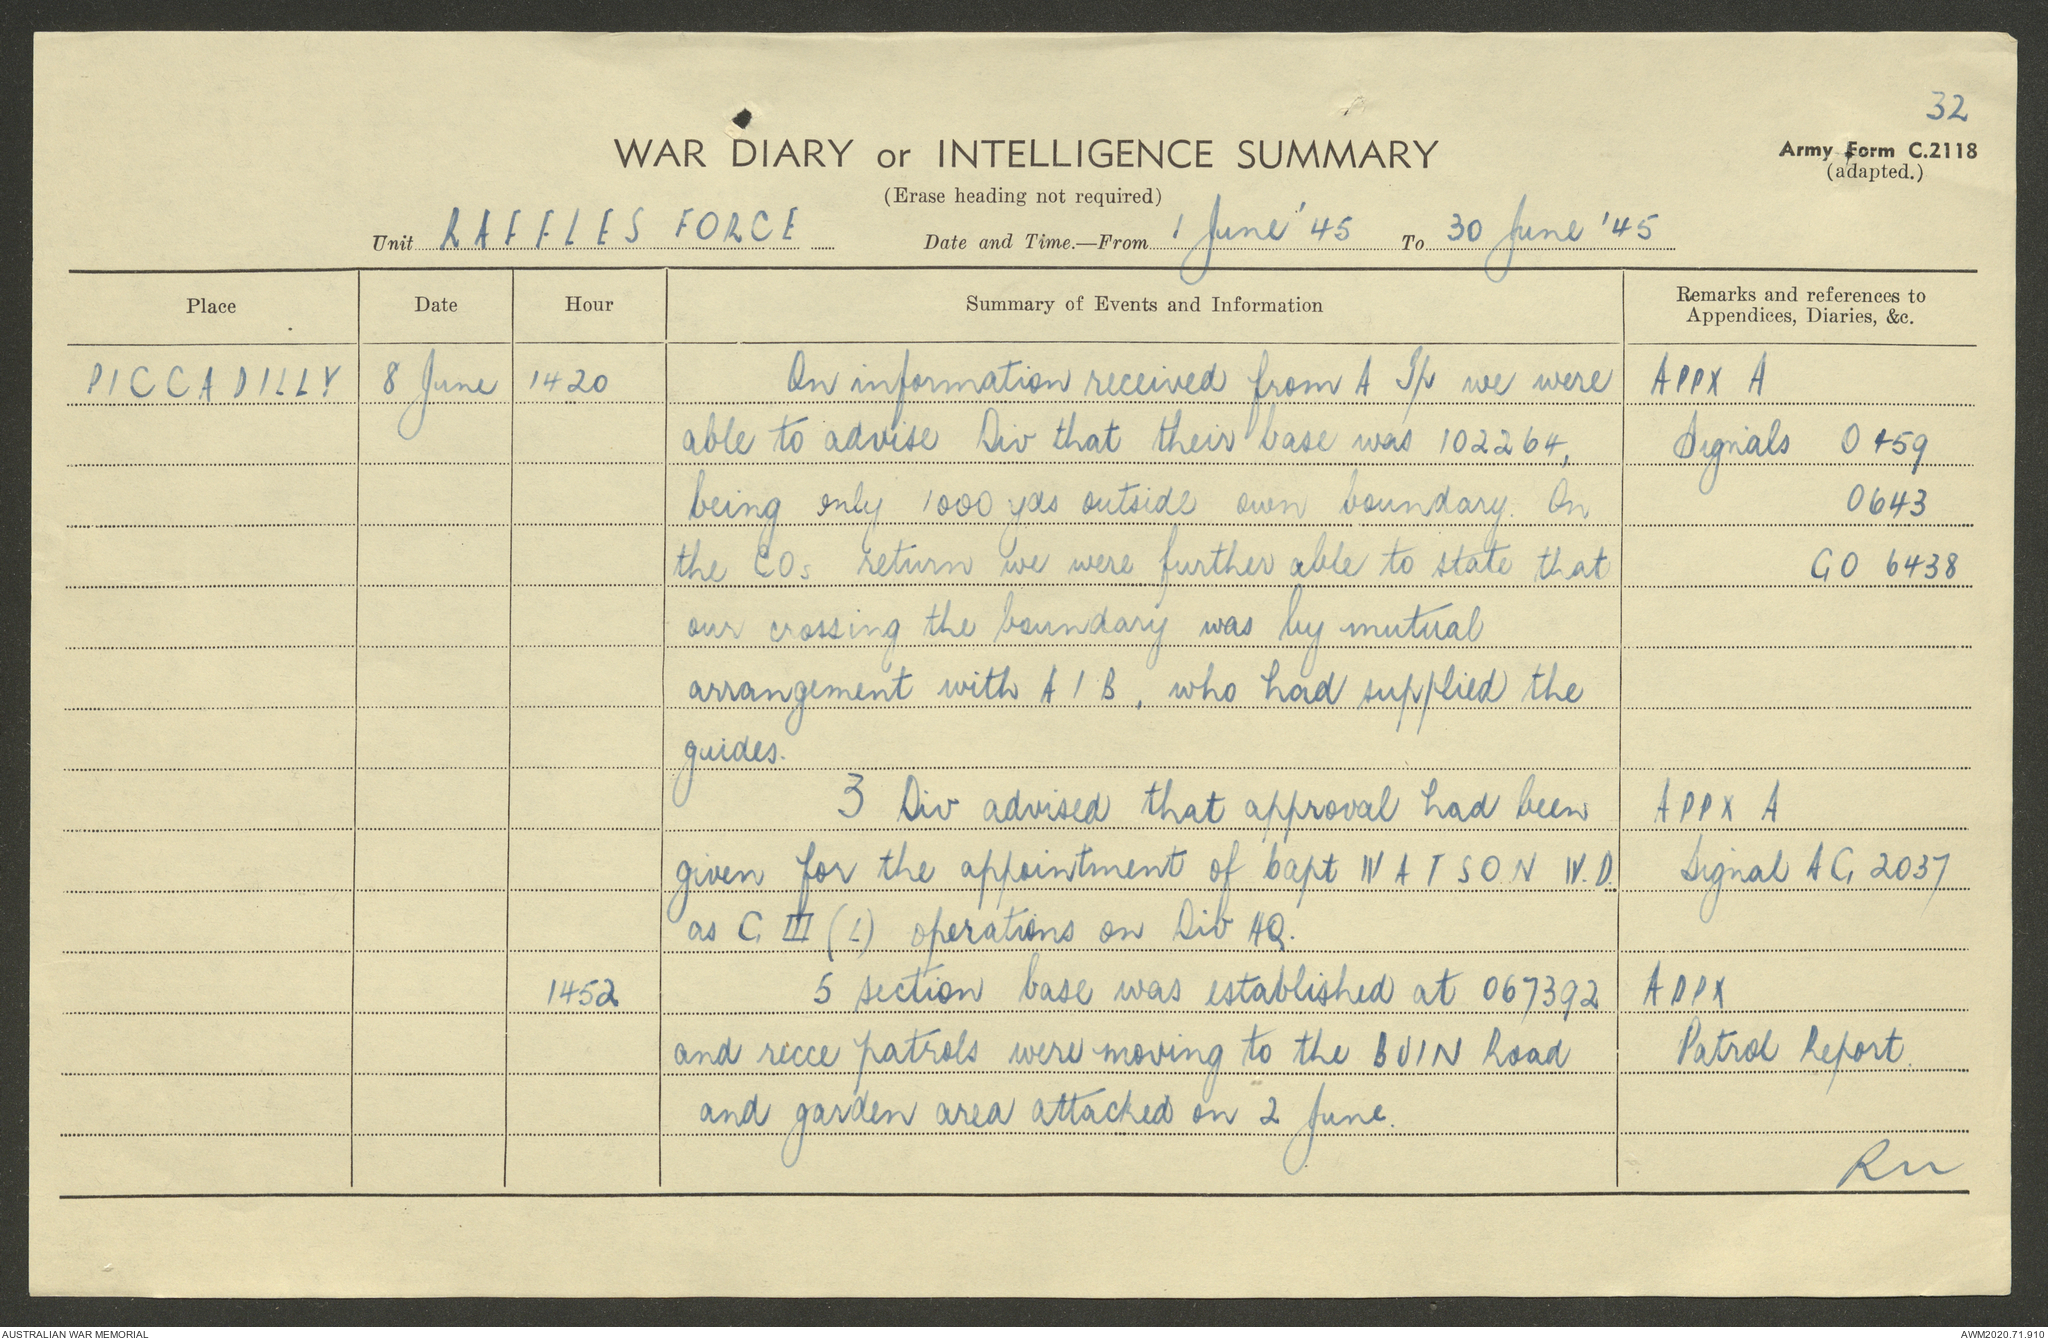 32
WAR DIARY or INTELLIGENCE SUMMARY
Army Form C.2118
(adapted.)
(Erase heading not required)
Unit RAFFLES FORCE Date and Time.—From 1 June '45 To 30 June '45
Place Date Hour Summary of Events and Information Remarks and references to
Appendices, Diaries, &c.
PICCADILLY 8 June 1420 On information received from A Tp we were APPX A
able to advise Div that their base was 102264, Signals O 459
being only 1000 yds outside own boundary. On 0643
the COs return we were further able to state that GO 6438
our crossing the boundary was by mutual
arrangement with A I B, who had supplied the
guides.
3 Div advised that approval had been APPX A
given for the appointment of Capt WATSON W.D. Signal AG 2037
as G III (L) operations on Div HQ.
1452 5 section base was established at 067392 APPX
and recce patrols were moving to the BUIN Road Patrol Report.
and garden area attached on 2 June.
AUSTRALIAN WAR MEMORIAL
AWM2020.71.910